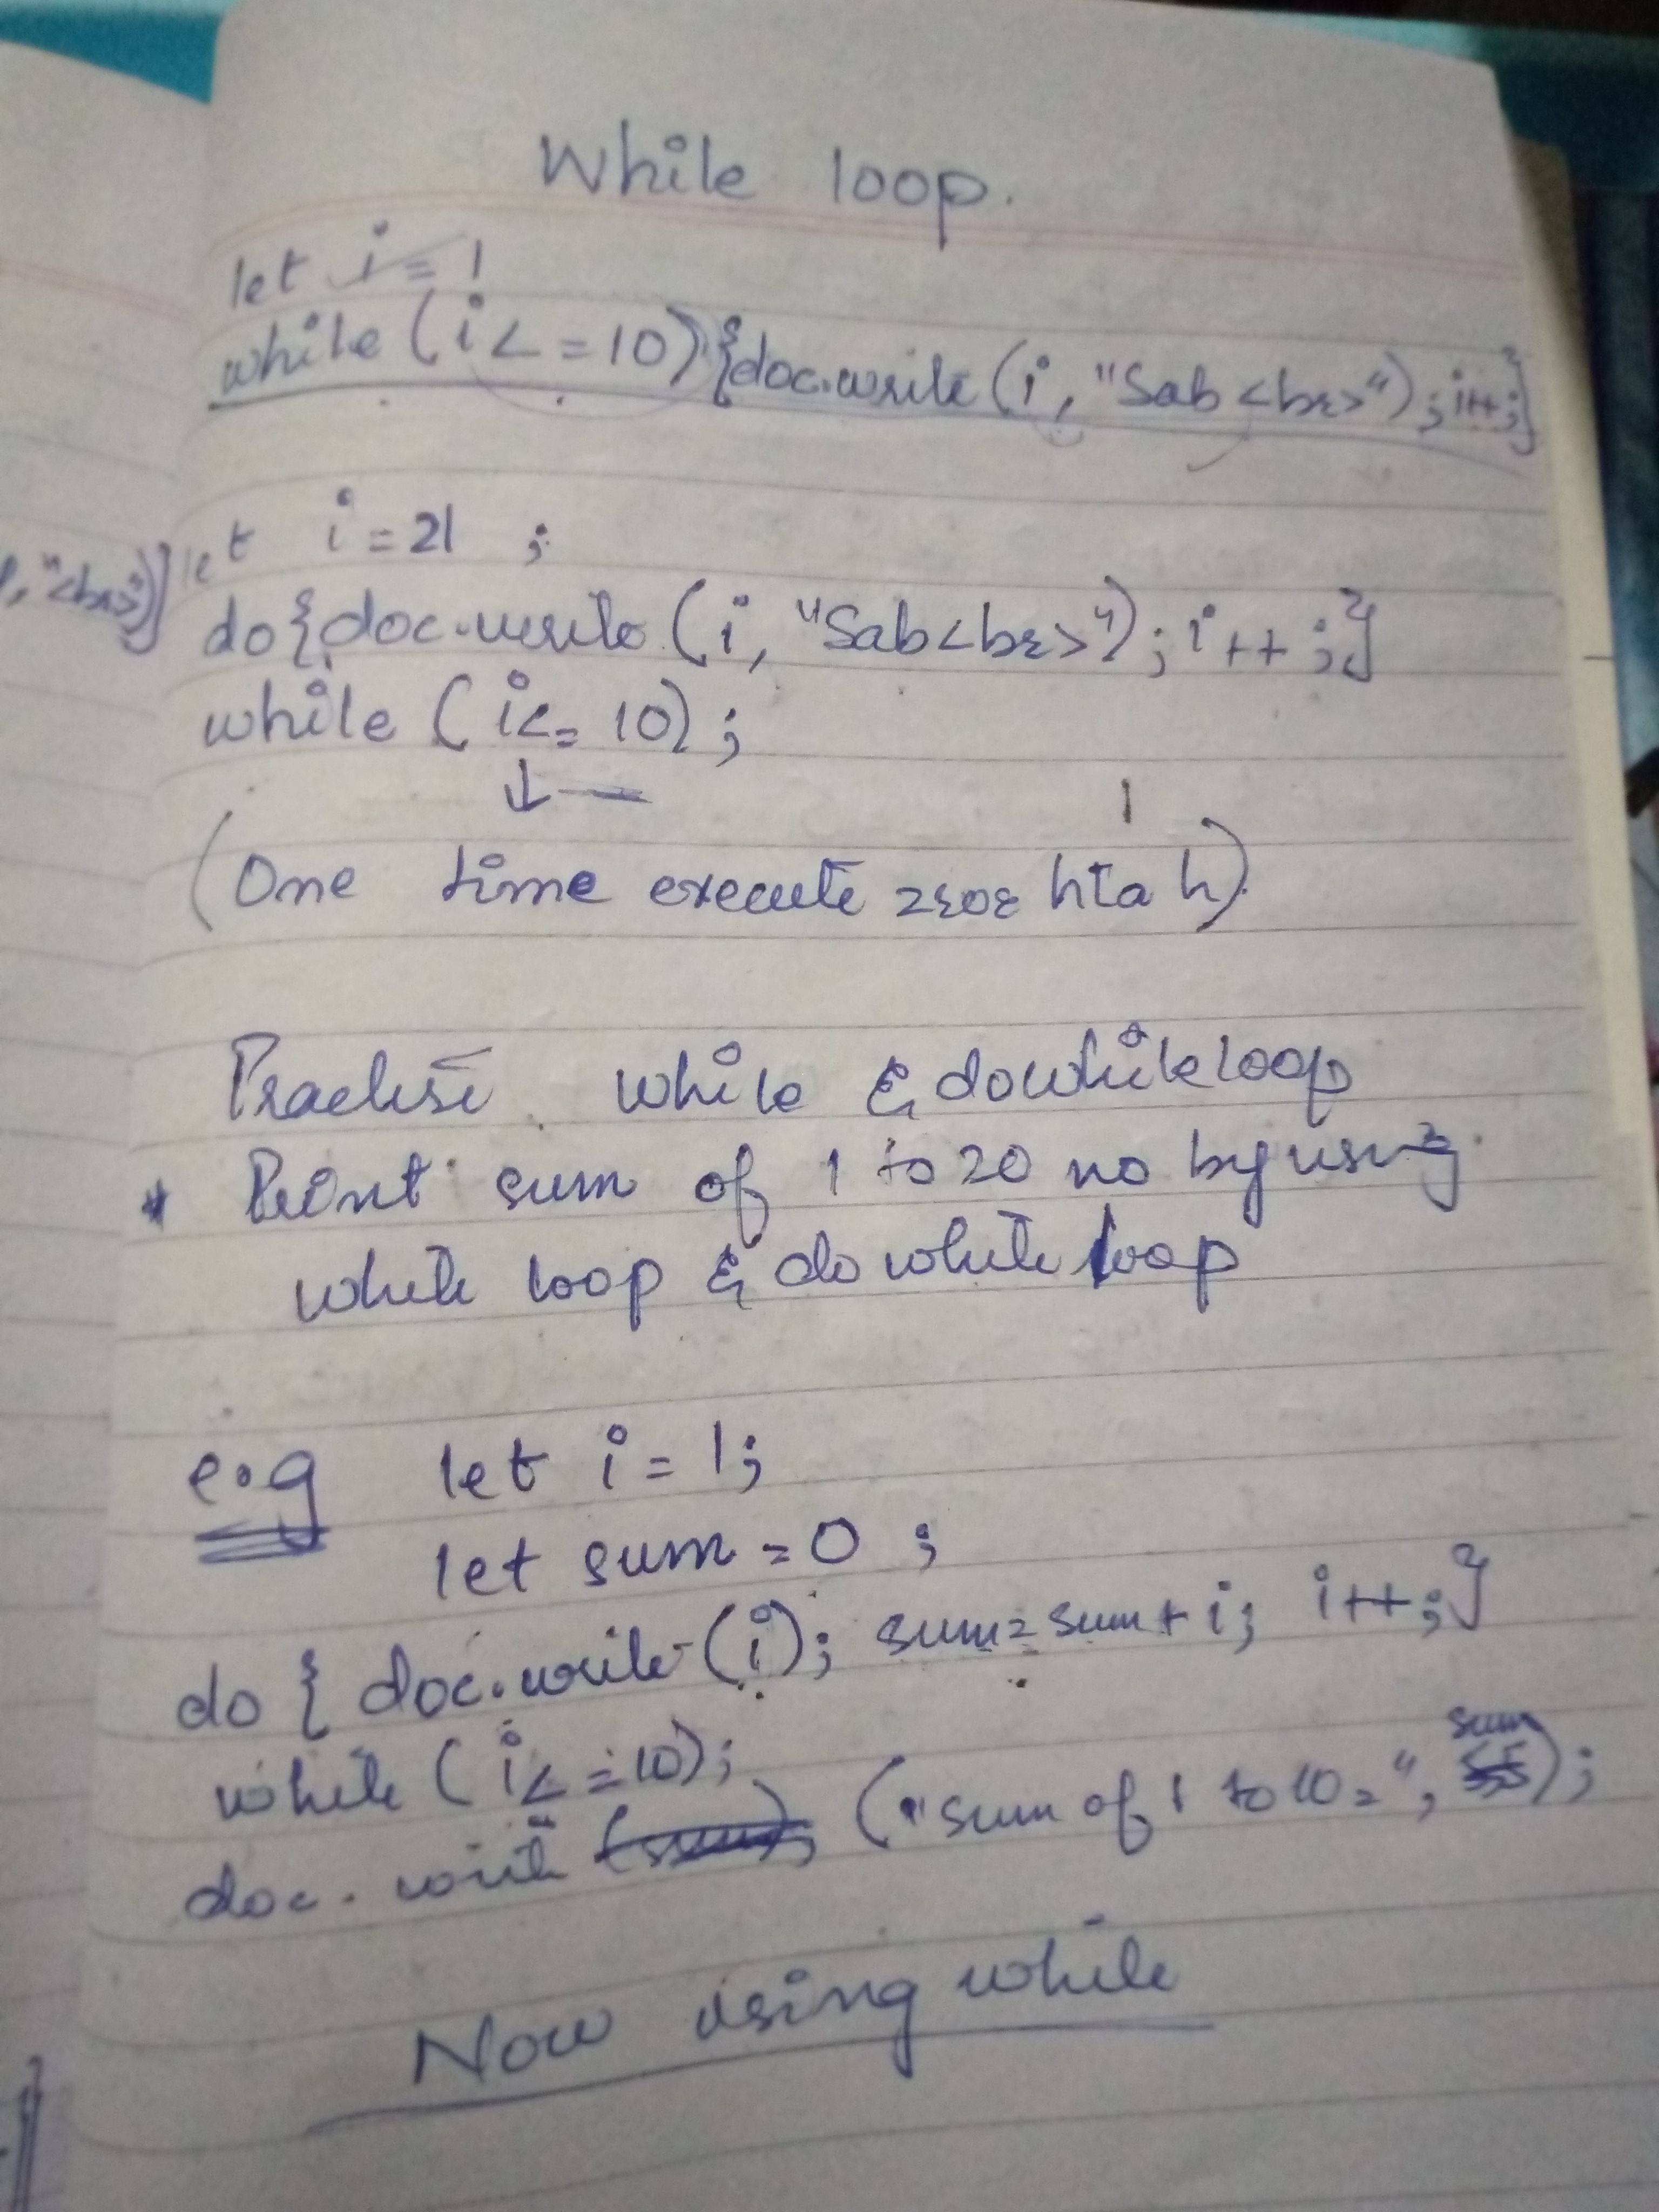 While loop.
let i = 1
while (i <= 10) {doc.write (i, "Sab <br>") ; i++;}
let i = 21 ;
, "<br>")}
do {doc.write (i, "Sab <br>") ; i++ ;}
while ( i <= 10) ;
(One time execute zror hta h)
Practise while & dowhile loop
* Print sum of 1 to 20 no by using
while loop & do while loop
e.g let i = 1;
let sum = 0 ;
do { doc.write (i); sum = sum + i; i++;}
while ( i <= 10);
doc. write ("sum of 1 to 10 = ", sum);
Now using while